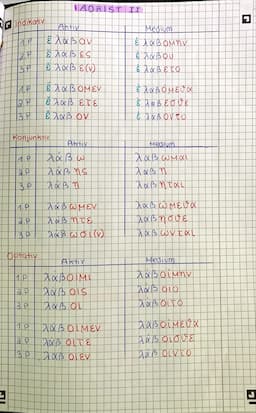 AORIST II
Indikativ
Aktiv Medium
1.P ἐλαβον ἐλαβομην
2.P ἐλαβες ἐλαβου
3.P ἐλαβε(ν) ἐλαβετο
1.P ἐλαβομεν ἐλαβομεθα
2.P ἐλαβετε ἐλαβεσθε
3.P ἐλαβον ἐλαβοντο
Konjunktiv
Aktiv Medium
1.P λαβω λαβωμαι
2.P λαβης λαβη
3.P λαβη λαβηται
1.P λαβωμεν λαβωμεθα
2.P λαβητε λαβησθε
3.P λαβωσι(ν) λαβωνται
Optativ
Aktiv Medium
1.P λαβοιμι λαβοιμην
2.P λαβοις λαβοιο
3.P λαβοι λαβοιτο
1.P λαβοιμεν λαβοιμεθα
2.P λαβοιτε λαβοισθε
3.P λαβοιεν λαβοιντο